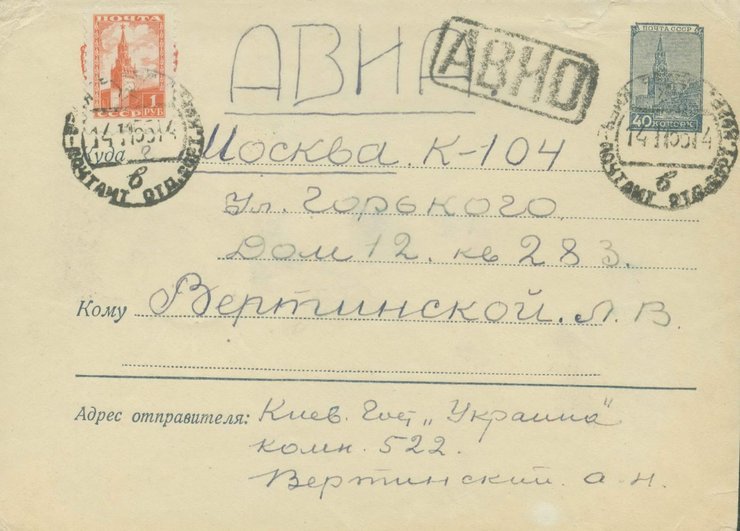 ПОЧТА
1 РУБ
СССР
АВИА
АВИО
ПОЧТА СССР
40 КОПЕЕК
Куда Москва. К-104
Ул. Горького
Дом 12. кв 283.
Кому Вертинской. Л. В.
Адрес отправителя: Киев. Гост „Украина"
комн. 522.
Вертинский. а. н.